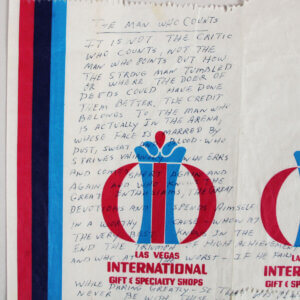 THE MAN WHO COUNTS
IT IS NOT THE CRITIC
WHO COUNTS, NOT THE
MAN WHO POINTS OUT HOW
THE STRONG MAN TUMBLED
OR WHERE THE DOER OF
DEEDS COULD HAVE DONE
THEM BETTER. THE CREDIT
BELONGS TO THE MAN WHO
IS ACTUALLY IN THE ARENA,
WHOSE FACE IS MARRED BY
DUST, SWEAT BLOOD. WHO
STRIVES WHO ERRS
AND COMES SHORT AGAIN AND
AGAIN AND WHO THE
GREAT ENTHUSIASMS, THE GREAT
DEVOTIONS AND SPENDS HIMSELF
IN A WORTHY CAUSE. WHO AT
THE VERY IN THE
END THE TRIUMPH HIGH ACHIEVEMENT
AND WHO AT WORST - IF HE FAILS
WHILE DARING GREATLY SO THAT
NEVER BE WITH
LAS VEGAS
INTERNATIONAL
GIFT & SPECIALTY SHOPS
INTERN
GIFT & SPEC